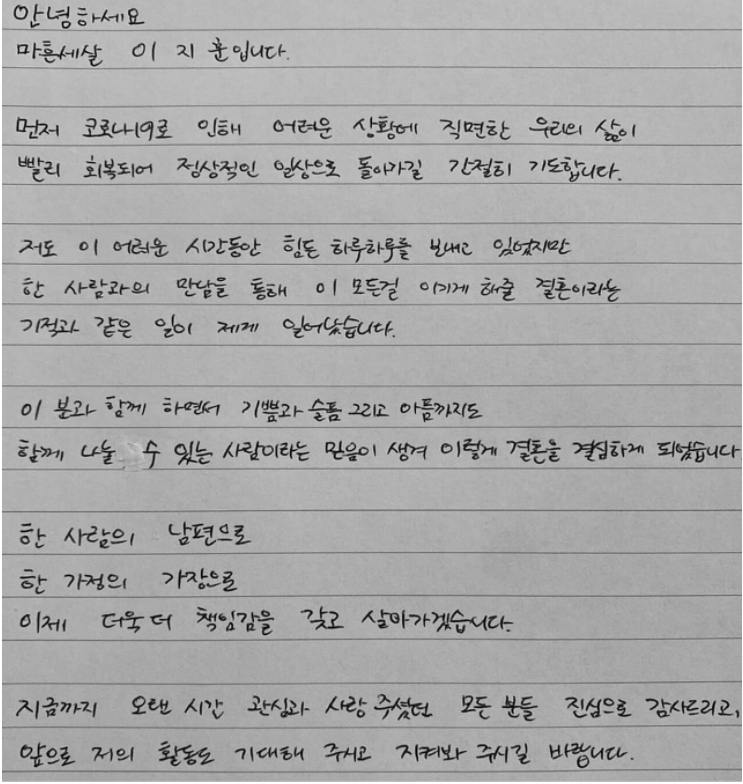 안녕하세요
마흔세살 이 지 훈입니다.
먼저 코로나19로 인해 어려운 상황에 직면한 우리의 삶이
빨리 회복되어 정상적인 일상으로 돌아가길 간절히 기도합니다.
저도 이 어려운 시간동안 힘든 하루하루를 보내고 있었지만
한 사람과의 만남을 통해 이 모든걸 이기게 해줄 결혼이라는
기적과 같은 일이 제게 일어났습니다.
이 분과 함께 하면서 기쁨과 슬픔 그리고 아픔까지도
함께 나눌 수 있는 사람이라는 믿음이 생겨 이렇게 결혼을 결심하게 되었습니다
한 사람의 남편으로
한 가정의 가장으로
이제 더욱 더 책임감을 갖고 살아가겠습니다.
지금까지 오랜 시간 관심과 사랑 주셨던 모든 분들 진심으로 감사드리고,
앞으로 저의 활동도 기대해 주시고 지켜봐 주시길 바랍니다.